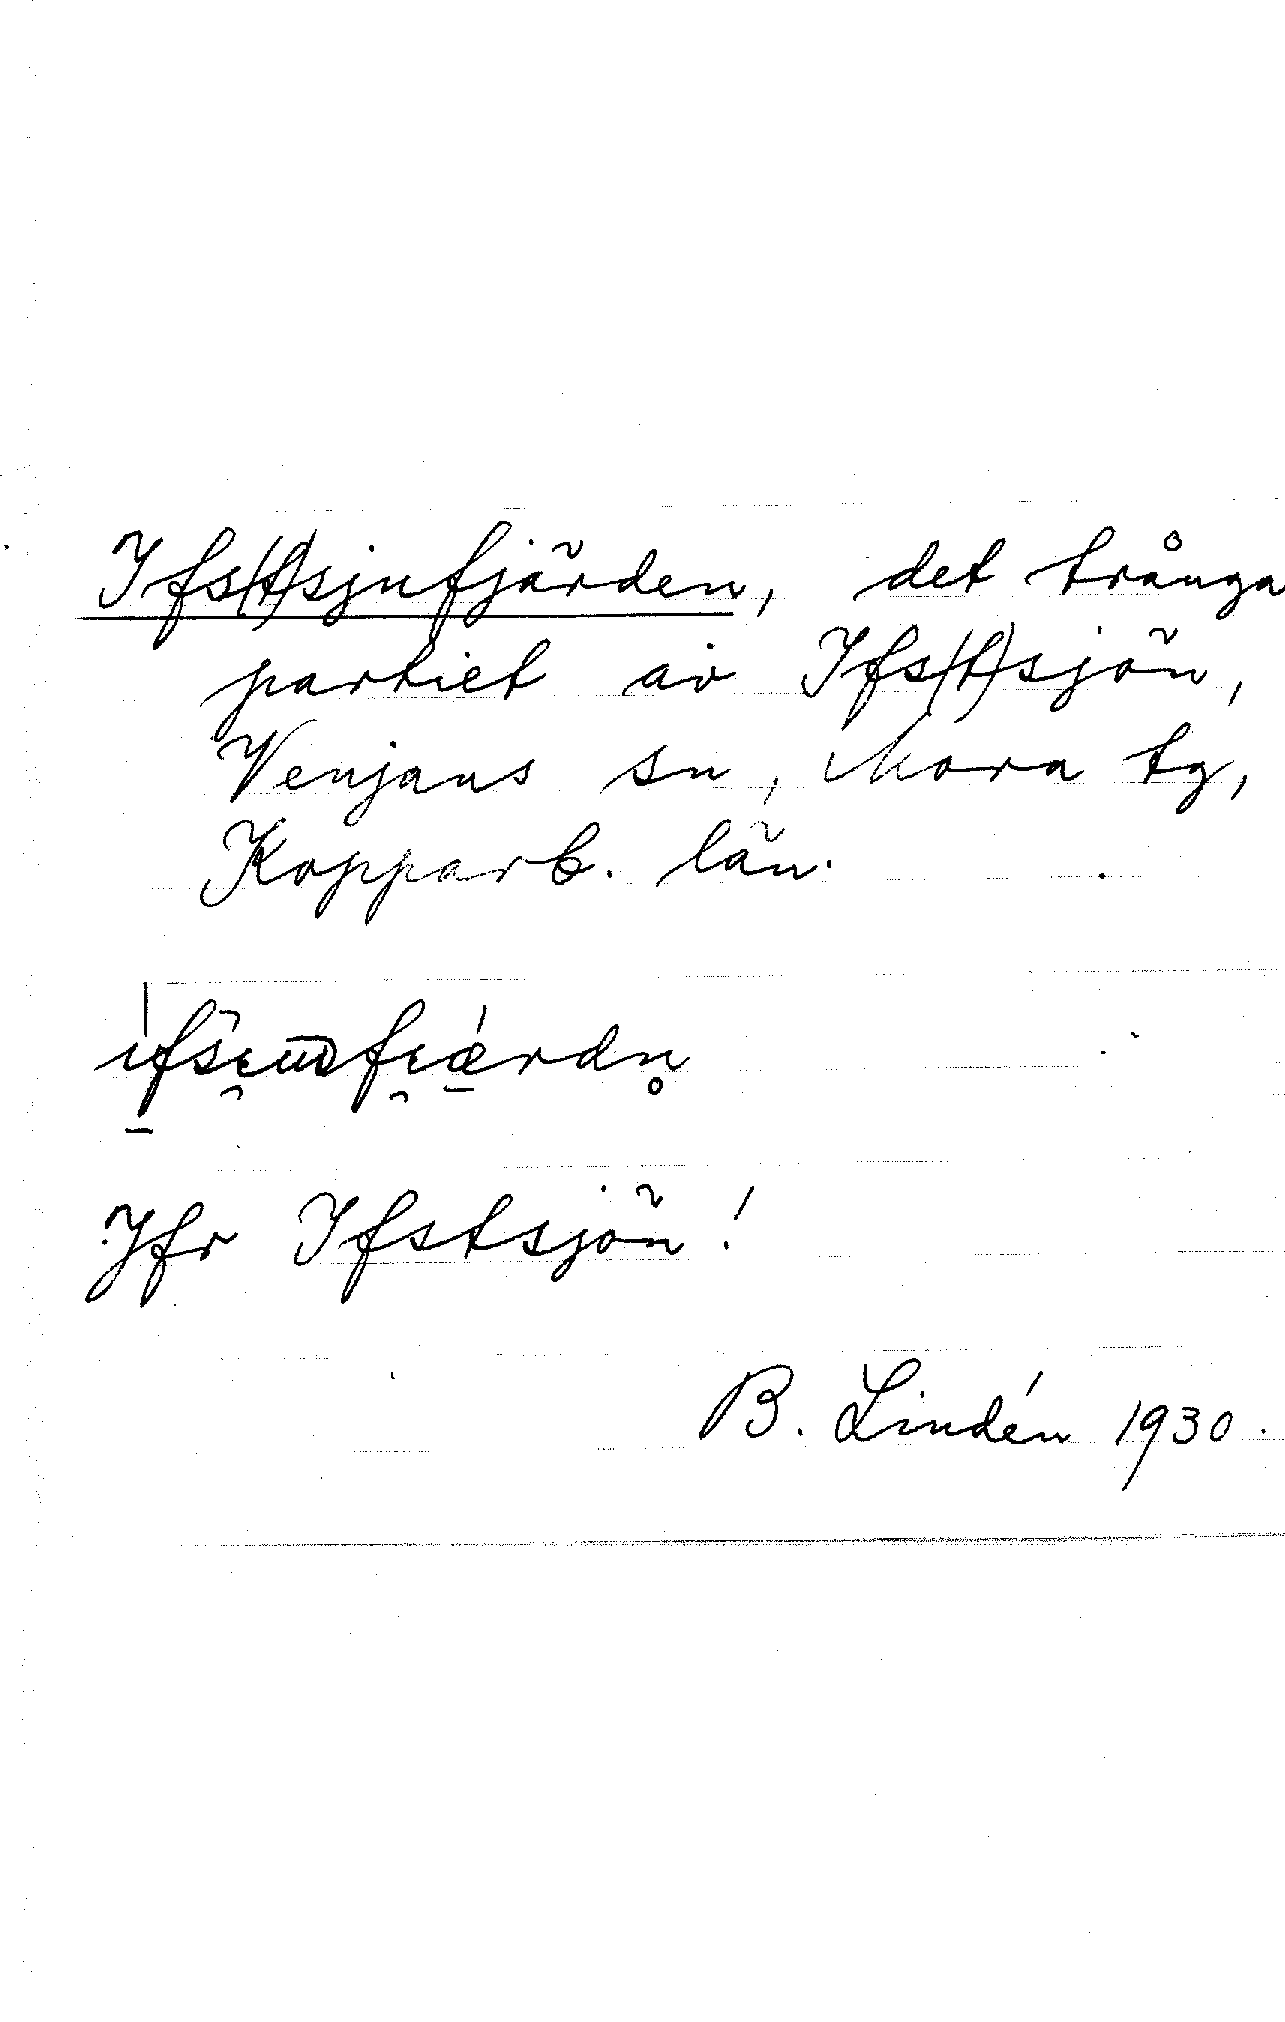 Ifs(t)sjufjärden, det trånga
partiet av Ifs(t)sjön,
Venjans sn, Mora tg,
Kopparb. län.
Jfr Ifstsjön!
B. Lindén 1930.